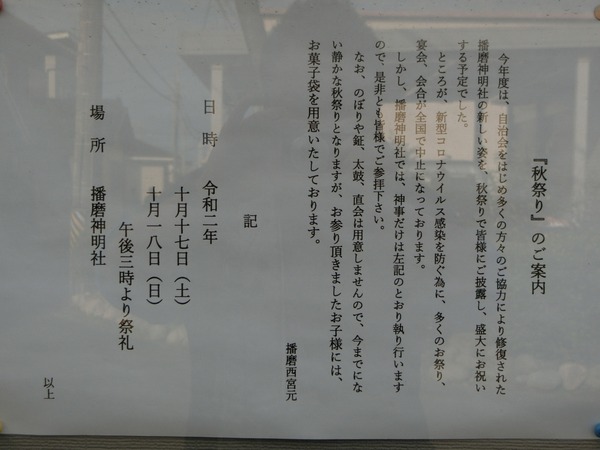 『秋祭り』のご案内
今年度は、自治会をはじめ多くの方々のご協力により修復された
播磨神明社の新しい姿を、秋祭りで皆様にご披露し、盛大にお祝い
する予定でした。
ところが、新型コロナウイルス感染を防ぐ為に、多くのお祭り、
宴会、会合が全国で中止になっております。
しかし、播磨神明社では、神事だけは左記のとおり執り行います
ので、是非とも皆様でご参拝下さい。
なお、のぼりや鉦、太鼓、直会は用意しませんので、今までにな
い静かな秋祭りとなりますが、お参り頂きましたお子様には、
お菓子袋を用意いたしております。
播磨西宮元
記
日時 令和二年
十月十七日（土）
十月一八日（日）
午後三時より祭礼
場所 播磨神明社
以上